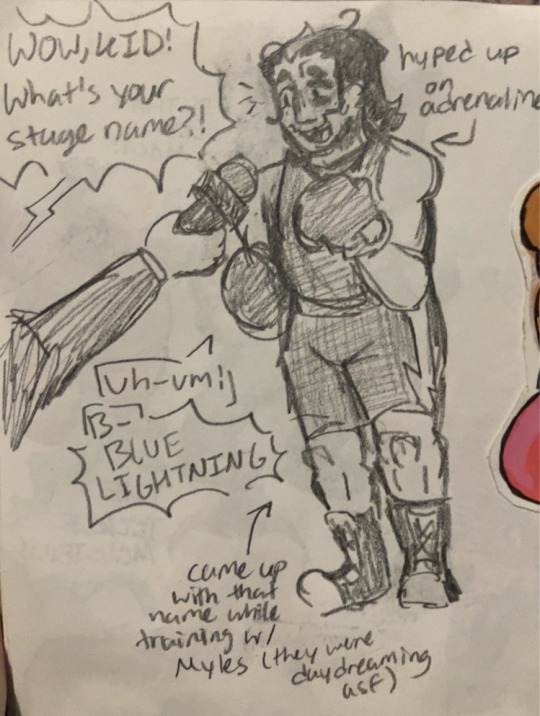 WOW, KID!
What's your
stage name?!
hyped up
on
adrenaline
Uh-um!
B-
BLUE
LIGHTNING
came up
with that
name while
training w/
Myles (they were
daydreaming
asf)